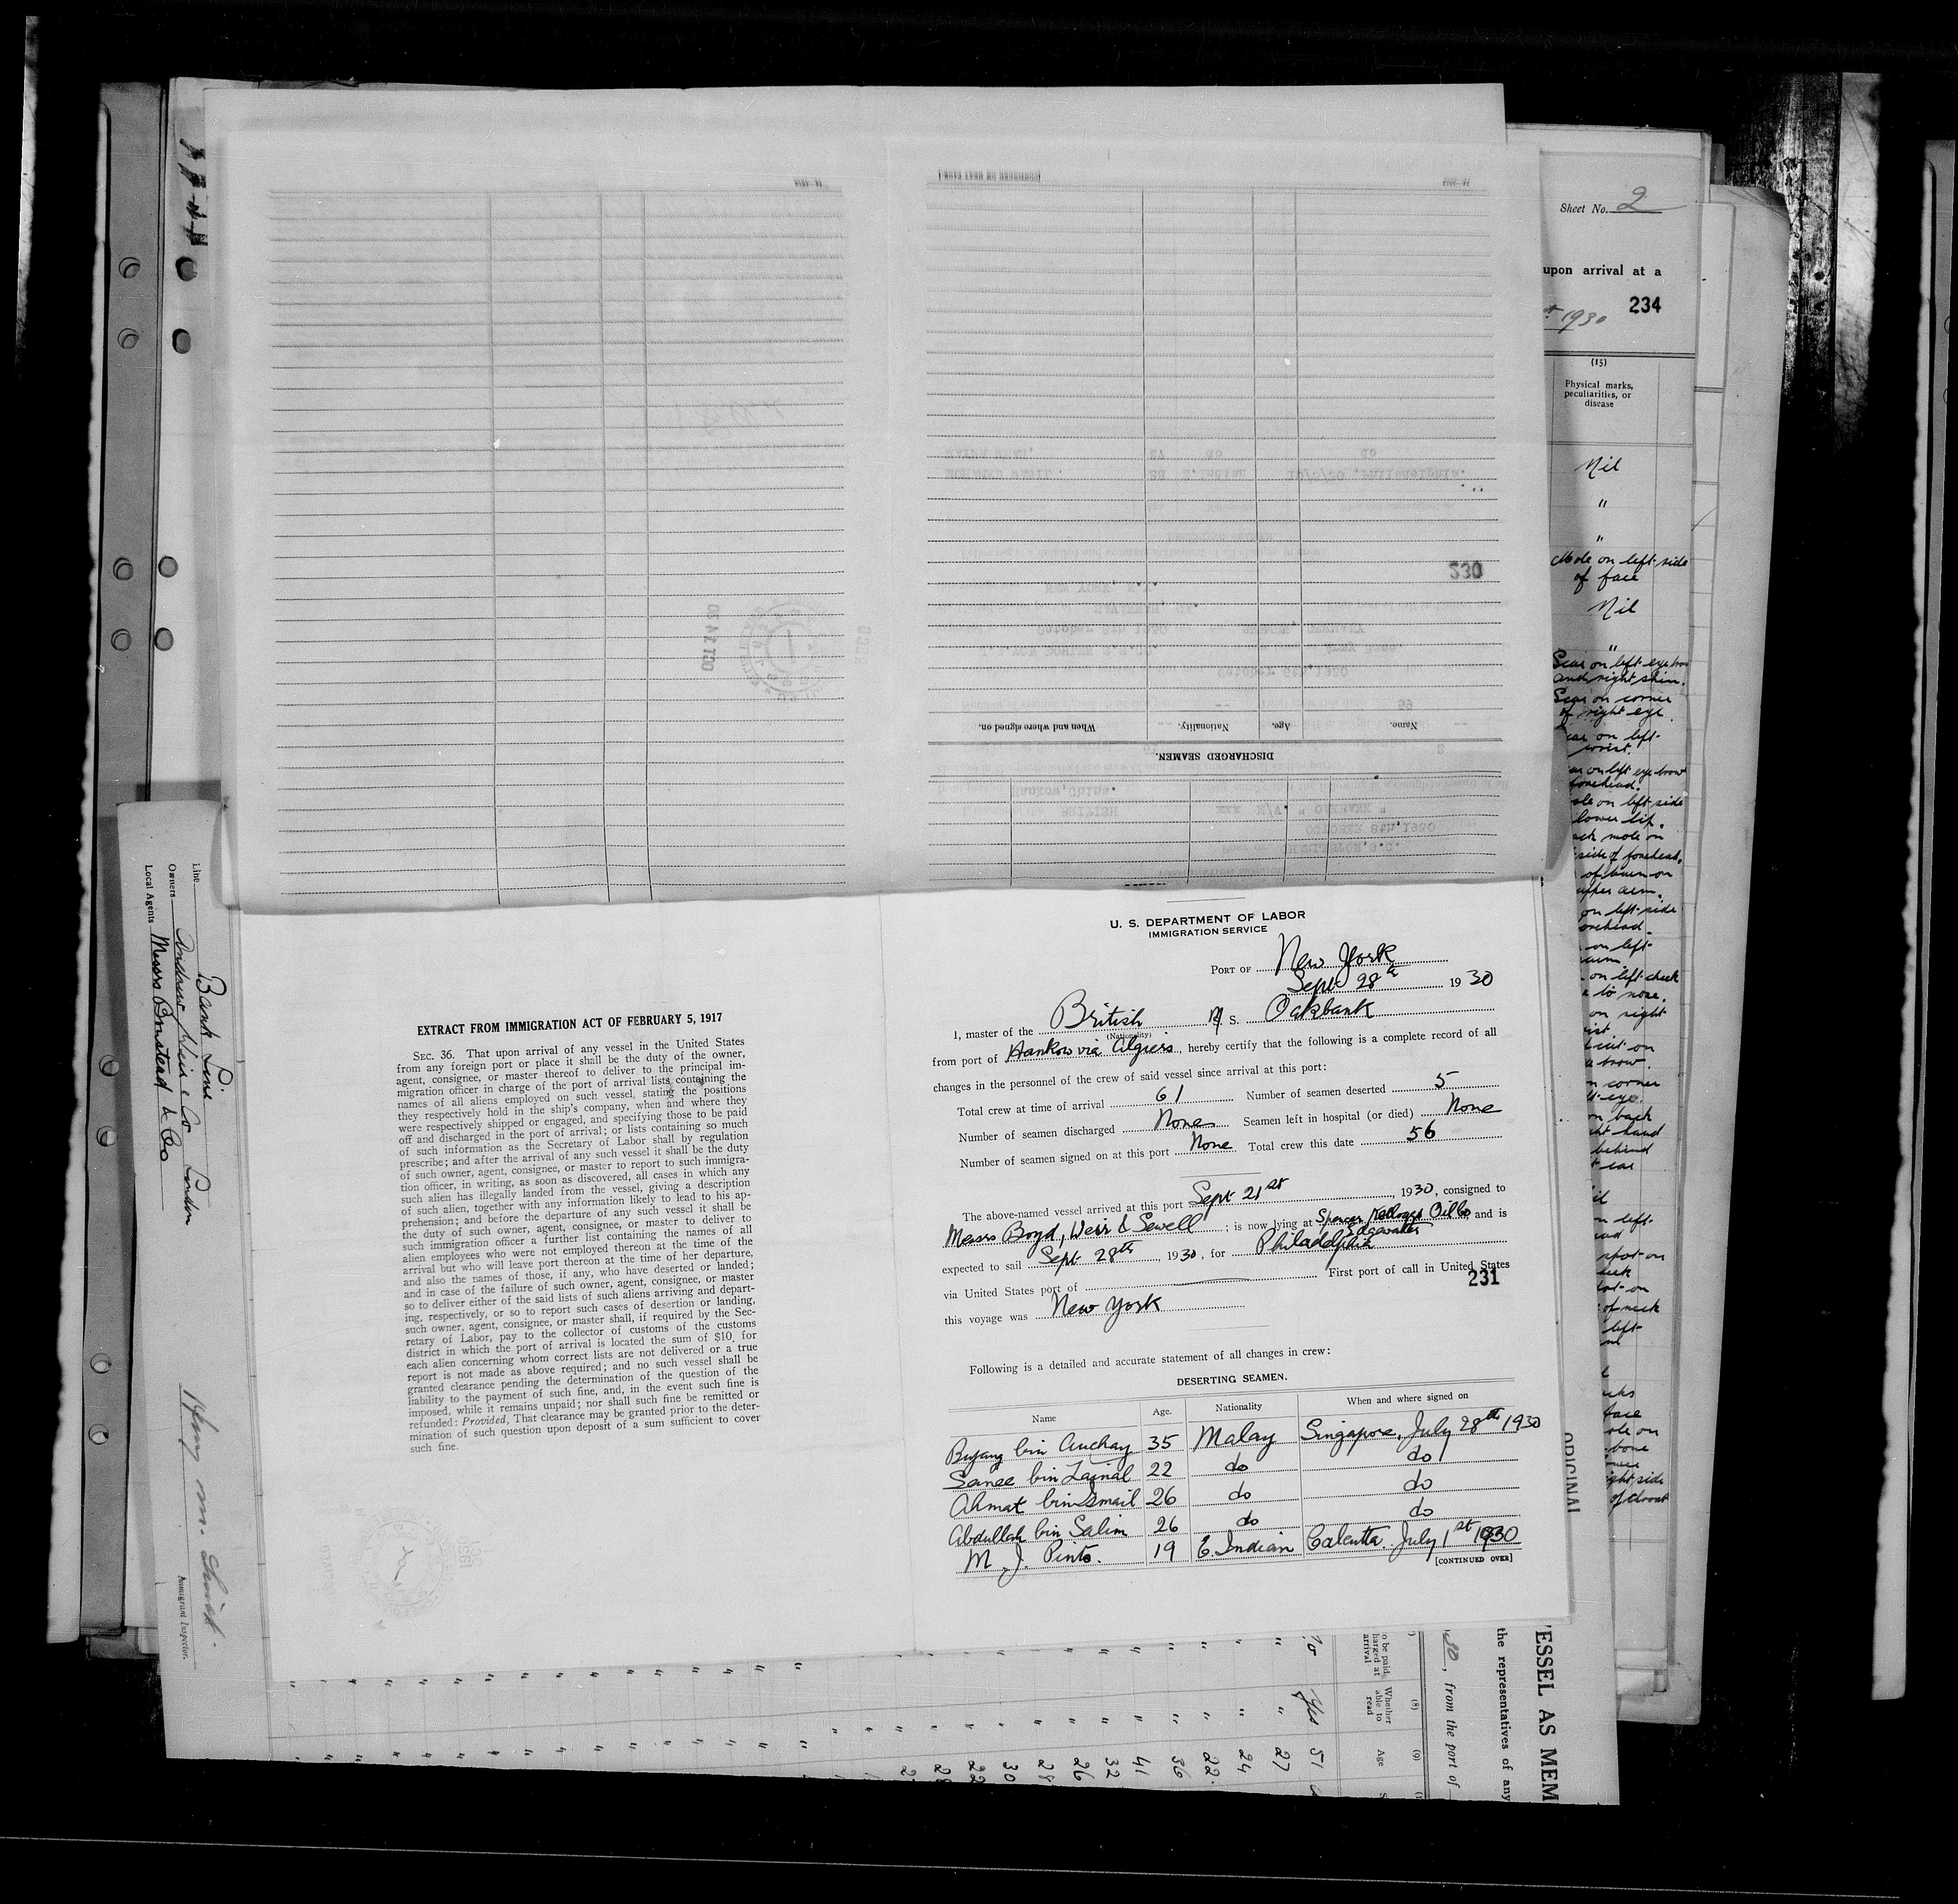 Sheet No. 2
upon arrival at a
1930
234
(15)
Physical marks,
peculiarities, or
disease
Nil
"
"
Mole on left side
of face
Nil
"
Scar on left eye brow
and right shin.
Scar on corner
of right eye
on left
wrist.
on left eye brow
forehead.
on left side
lower lip.
mole on
side of forehead.
of burn on
upper arm.
on left side
forehead.
on left
on left cheek
to nose.
on right
on
brow.
corner
eye.
on back
hand
behind
ear
on left
spot on
of neck
left
face
on
bone
right side
of throat
230
OCT 14 30
DISCHARGED SEAMEN.
Name. Age. Nationality. When and where signed on.
Line Bank Line
Owners Andrew Weir & Co London
Local Agents Messrs Boustead & Co
Immigrant Inspector.
EXTRACT FROM IMMIGRATION ACT OF FEBRUARY 5, 1917
SEC. 36. That upon arrival of any vessel in the United States
from any foreign port or place it shall be the duty of the owner,
agent, consignee, or master thereof to deliver to the principal im-
migration officer in charge of the port of arrival lists containing the
names of all aliens employed on such vessel, stating the positions
they respectively hold in the ship's company, when and where they
were respectively shipped or engaged, and specifying those to be paid
off and discharged in the port of arrival; or lists containing so much
of such information as the Secretary of Labor shall by regulation
prescribe; and after the arrival of any such vessel it shall be the duty
of such owner, agent, consignee, or master to report to such immigra-
tion officer, in writing, as soon as discovered, all cases in which any
such alien has illegally landed from the vessel, giving a description
of such alien, together with any information likely to lead to his ap-
prehension; and before the departure of any such vessel it shall be
the duty of such owner, agent, consignee, or master to deliver to
such immigration officer a further list containing the names of all
alien employees who were not employed thereon at the time of the
arrival but who will leave port thereon at the time of her departure,
and also the names of those, if any, who have deserted or landed;
and in case of the failure of such owner, agent, consignee, or master
so to deliver either of the said lists of such aliens arriving and depart-
ing, respectively, or so to report such cases of desertion or landing,
such owner, agent, consignee, or master shall, if required by the Sec-
retary of Labor, pay to the collector of customs of the customs
district in which the port of arrival is located the sum of $10 for
each alien concerning whom correct lists are not delivered or a true
report is not made as above required; and no such vessel shall be
granted clearance pending the determination of the question of the
liability to the payment of such fine, and, in the event such fine is
imposed, while it remains unpaid; nor shall such fine be remitted or
refunded: Provided, That clearance may be granted prior to the deter-
mination of such question upon deposit of a sum sufficient to cover
such fine.
U. S. DEPARTMENT OF LABOR
IMMIGRATION SERVICE
PORT OF New York
Sept 28th 1930
I, master of the British M. S. Oakbank
(Nationality)
from port of Hankow via Algiers, hereby certify that the following is a complete record of all
changes in the personnel of the crew of said vessel since arrival at this port:
Total crew at time of arrival 61 Number of seamen deserted 5
Number of seamen discharged None Seamen left in hospital (or died) None
Number of seamen signed on at this port None Total crew this date 56
The above-named vessel arrived at this port Sept 21st, 1930, consigned to
Messrs Boyd, Weir & Sewell; is now lying at Spencer Kellogg Oil Co Edgewater and is
expected to sail Sept 28th, 1930, for Philadelphia
via United States port of First port of call in United States
231
this voyage was New York
Following is a detailed and accurate statement of all changes in crew:
DESERTING SEAMEN.
Name Age. Nationality When and where signed on
Bujang bin Auchay 35 Malay Singapore, July 28th 1930
Sanee bin Zainal 22 do do
Ahmat bin Ismail 26 do do
Abdullah bin Salim 26 do do
M. J. Pinto. 19 E. Indian Calcutta. July 1st 1930
[CONTINUED OVER]
ORIGINAL
ESSEL AS MEM
the representatives of any
30, from the port of
(8)
Whether
able to
read
(9)
Age
Yes 51
27
24
22
36
41
32
26
28
30
22
28